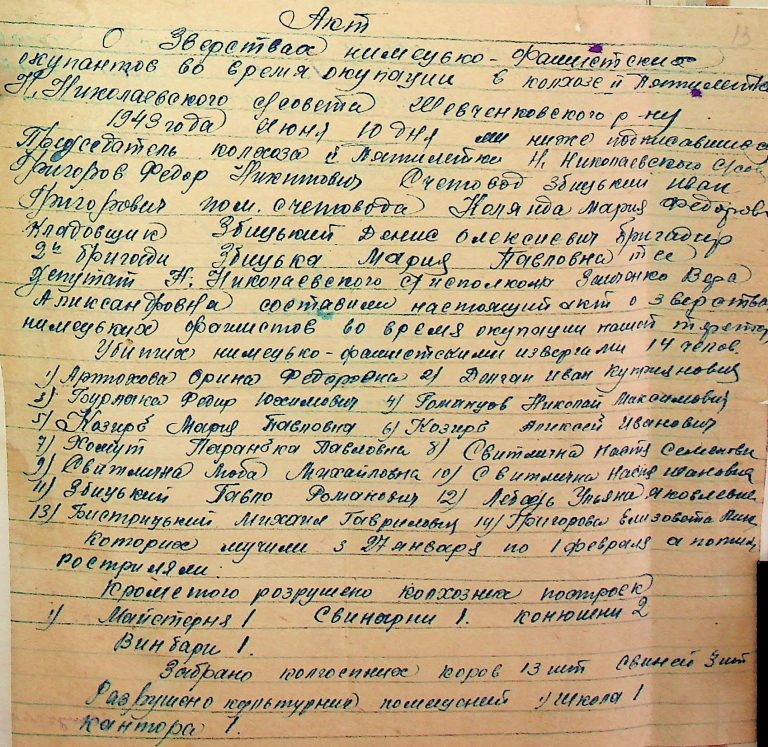 Акт
13
О Зверствах нимецько-фашистских
окупантов во время окупации в колхозе ІІ Пятилетка
Н. Николаевского с/совета Шевченковского р-ну
1943 года Июня 10 дня ми ниже подписавшиеся
Председатель колхоза ІІ Пятилетка Н. Николаевского с/сов
Григоров Федор Никитович Счетовод Збицький Иван
Григорович пом. счетовода Колянда Мария Федоровн
Кладовщик Збицький Денис Олексиевич бригадир
2й бригади Збицька Мария Павловна
депутат Н. Николаевского с/исполкома Заиченко Вера
Аликсандровна составили настоящий акт о зверства
нимецьких фашистов во время окупации нашей територ
Убитих нимецько-фашистскими извергами 14 челов.
1) Артюхова Орина Федоровна 2) Долган Иван Куприянович
3) Бурлака Федир Юхимович 4) Романцов Николай Максимович
5) Козирь Мария Павловна 6) Козирь Аликсей Иванович
7) Хомут Паранька Павловна 8) Свитлична Настя Семеновн
9) Свитлична Люба Михайловна 10) Свитлична Настя Ивановна
11) Збицький Павло Романович 12) Лебедь Ульяна Яковлевне
13) Бистрицький Михаил Гаврилович 14) Григорова Елизовета Ник
Которих мучили з 27 января по 1 февраля а потим
ростриляли.
Кроме того розрушено колхозних построек
1) Майстерня 1 Свинарни 1. конюшни 2
Винбари 1.
Забрано колгоспних коров 13 шт свиней 3 шт
Разрушено културних помещений 1) школа 1
кантора 1.